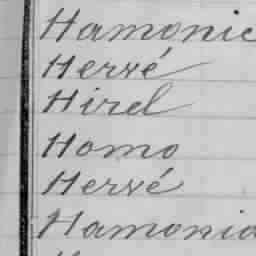 Hamonic
Hervé
Hirel
Homo
Hervé
Hamonic